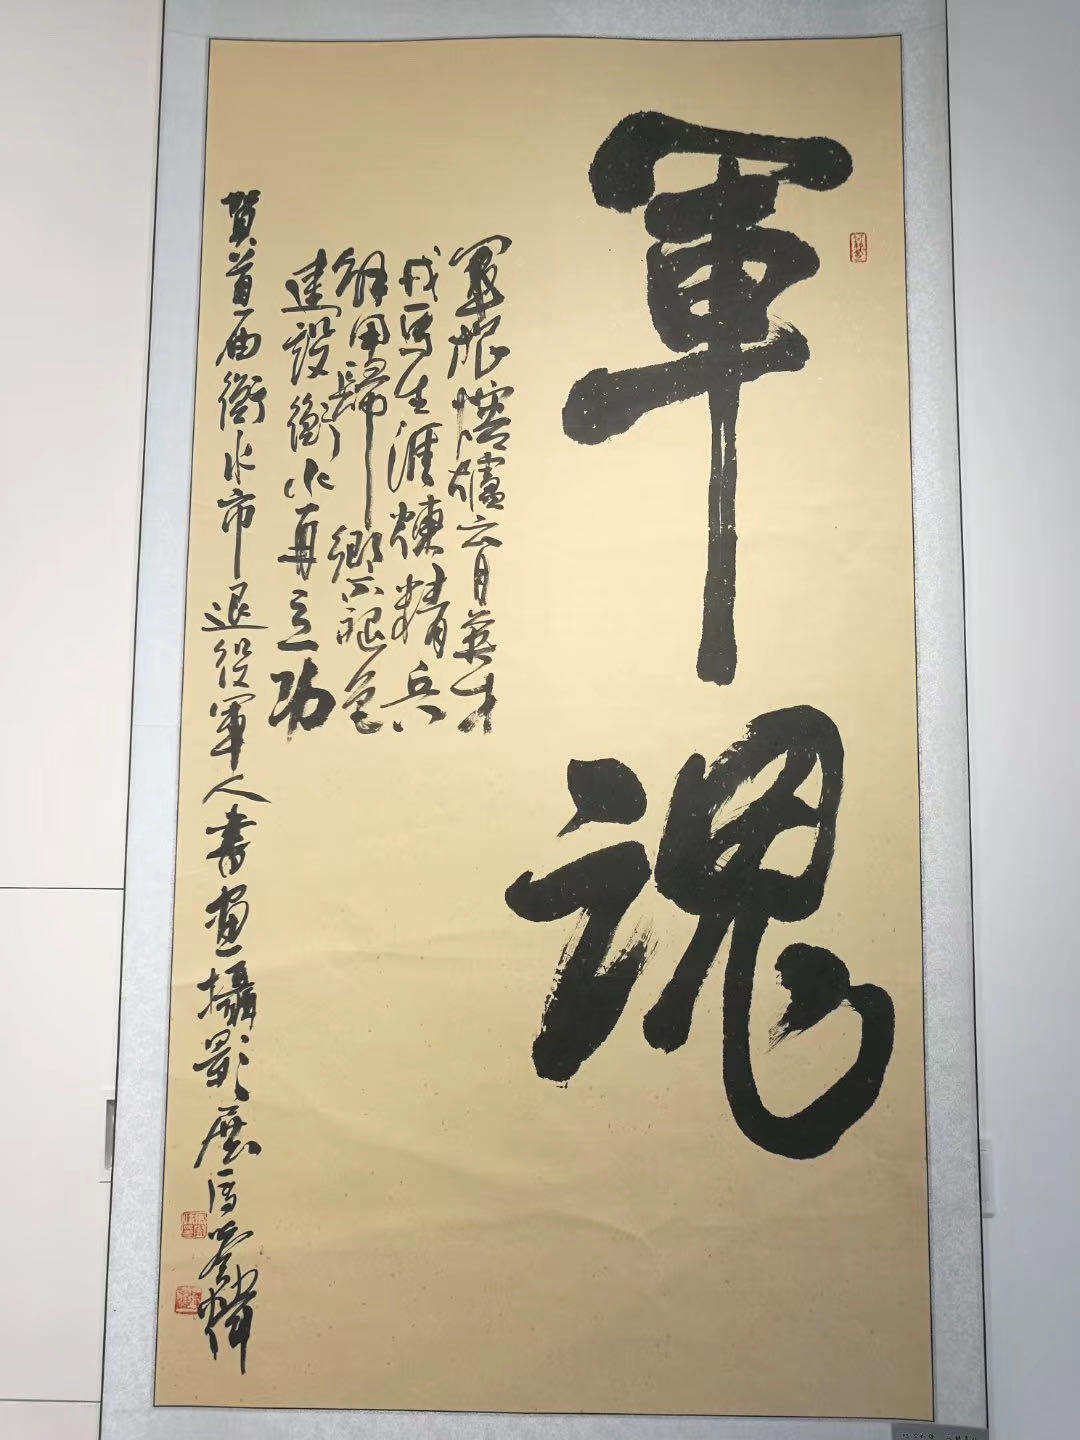 軍魂
軍旅熔爐育英才
戎馬生涯煉精兵
解甲歸鄉不褪色
建設衡水再立功
賀首届衡水市退役軍人書畫攝影展